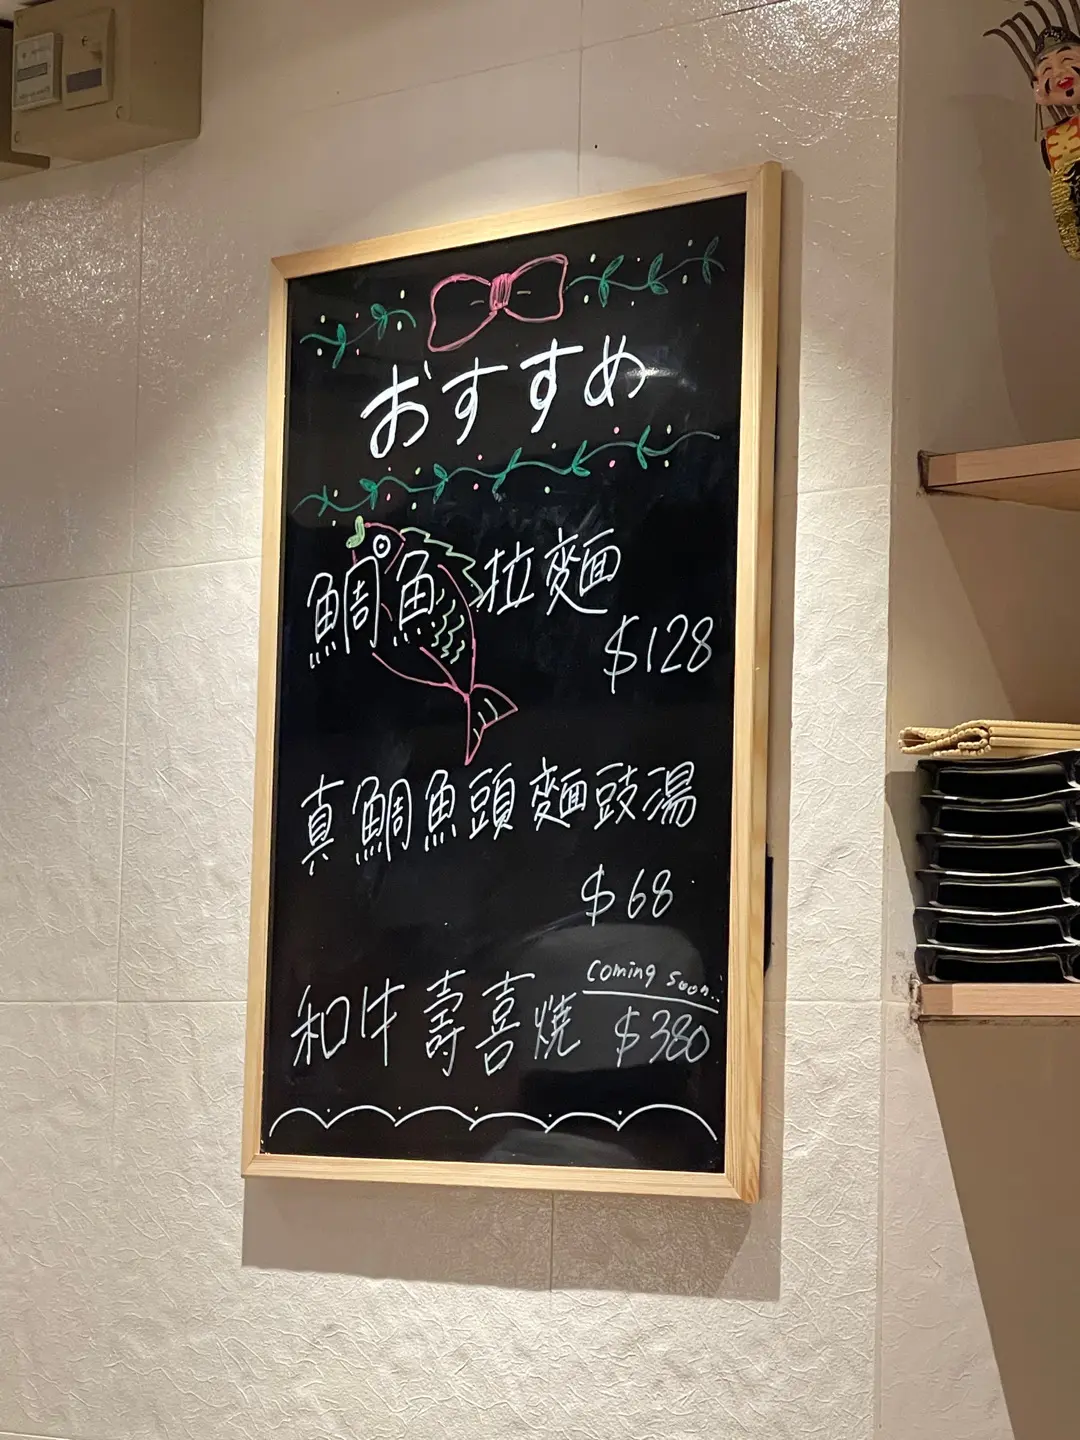 おすすめ
鯛魚拉麵
$128
真鯛魚頭麵豉湯
$68
Coming soon..
和牛壽喜燒 $380